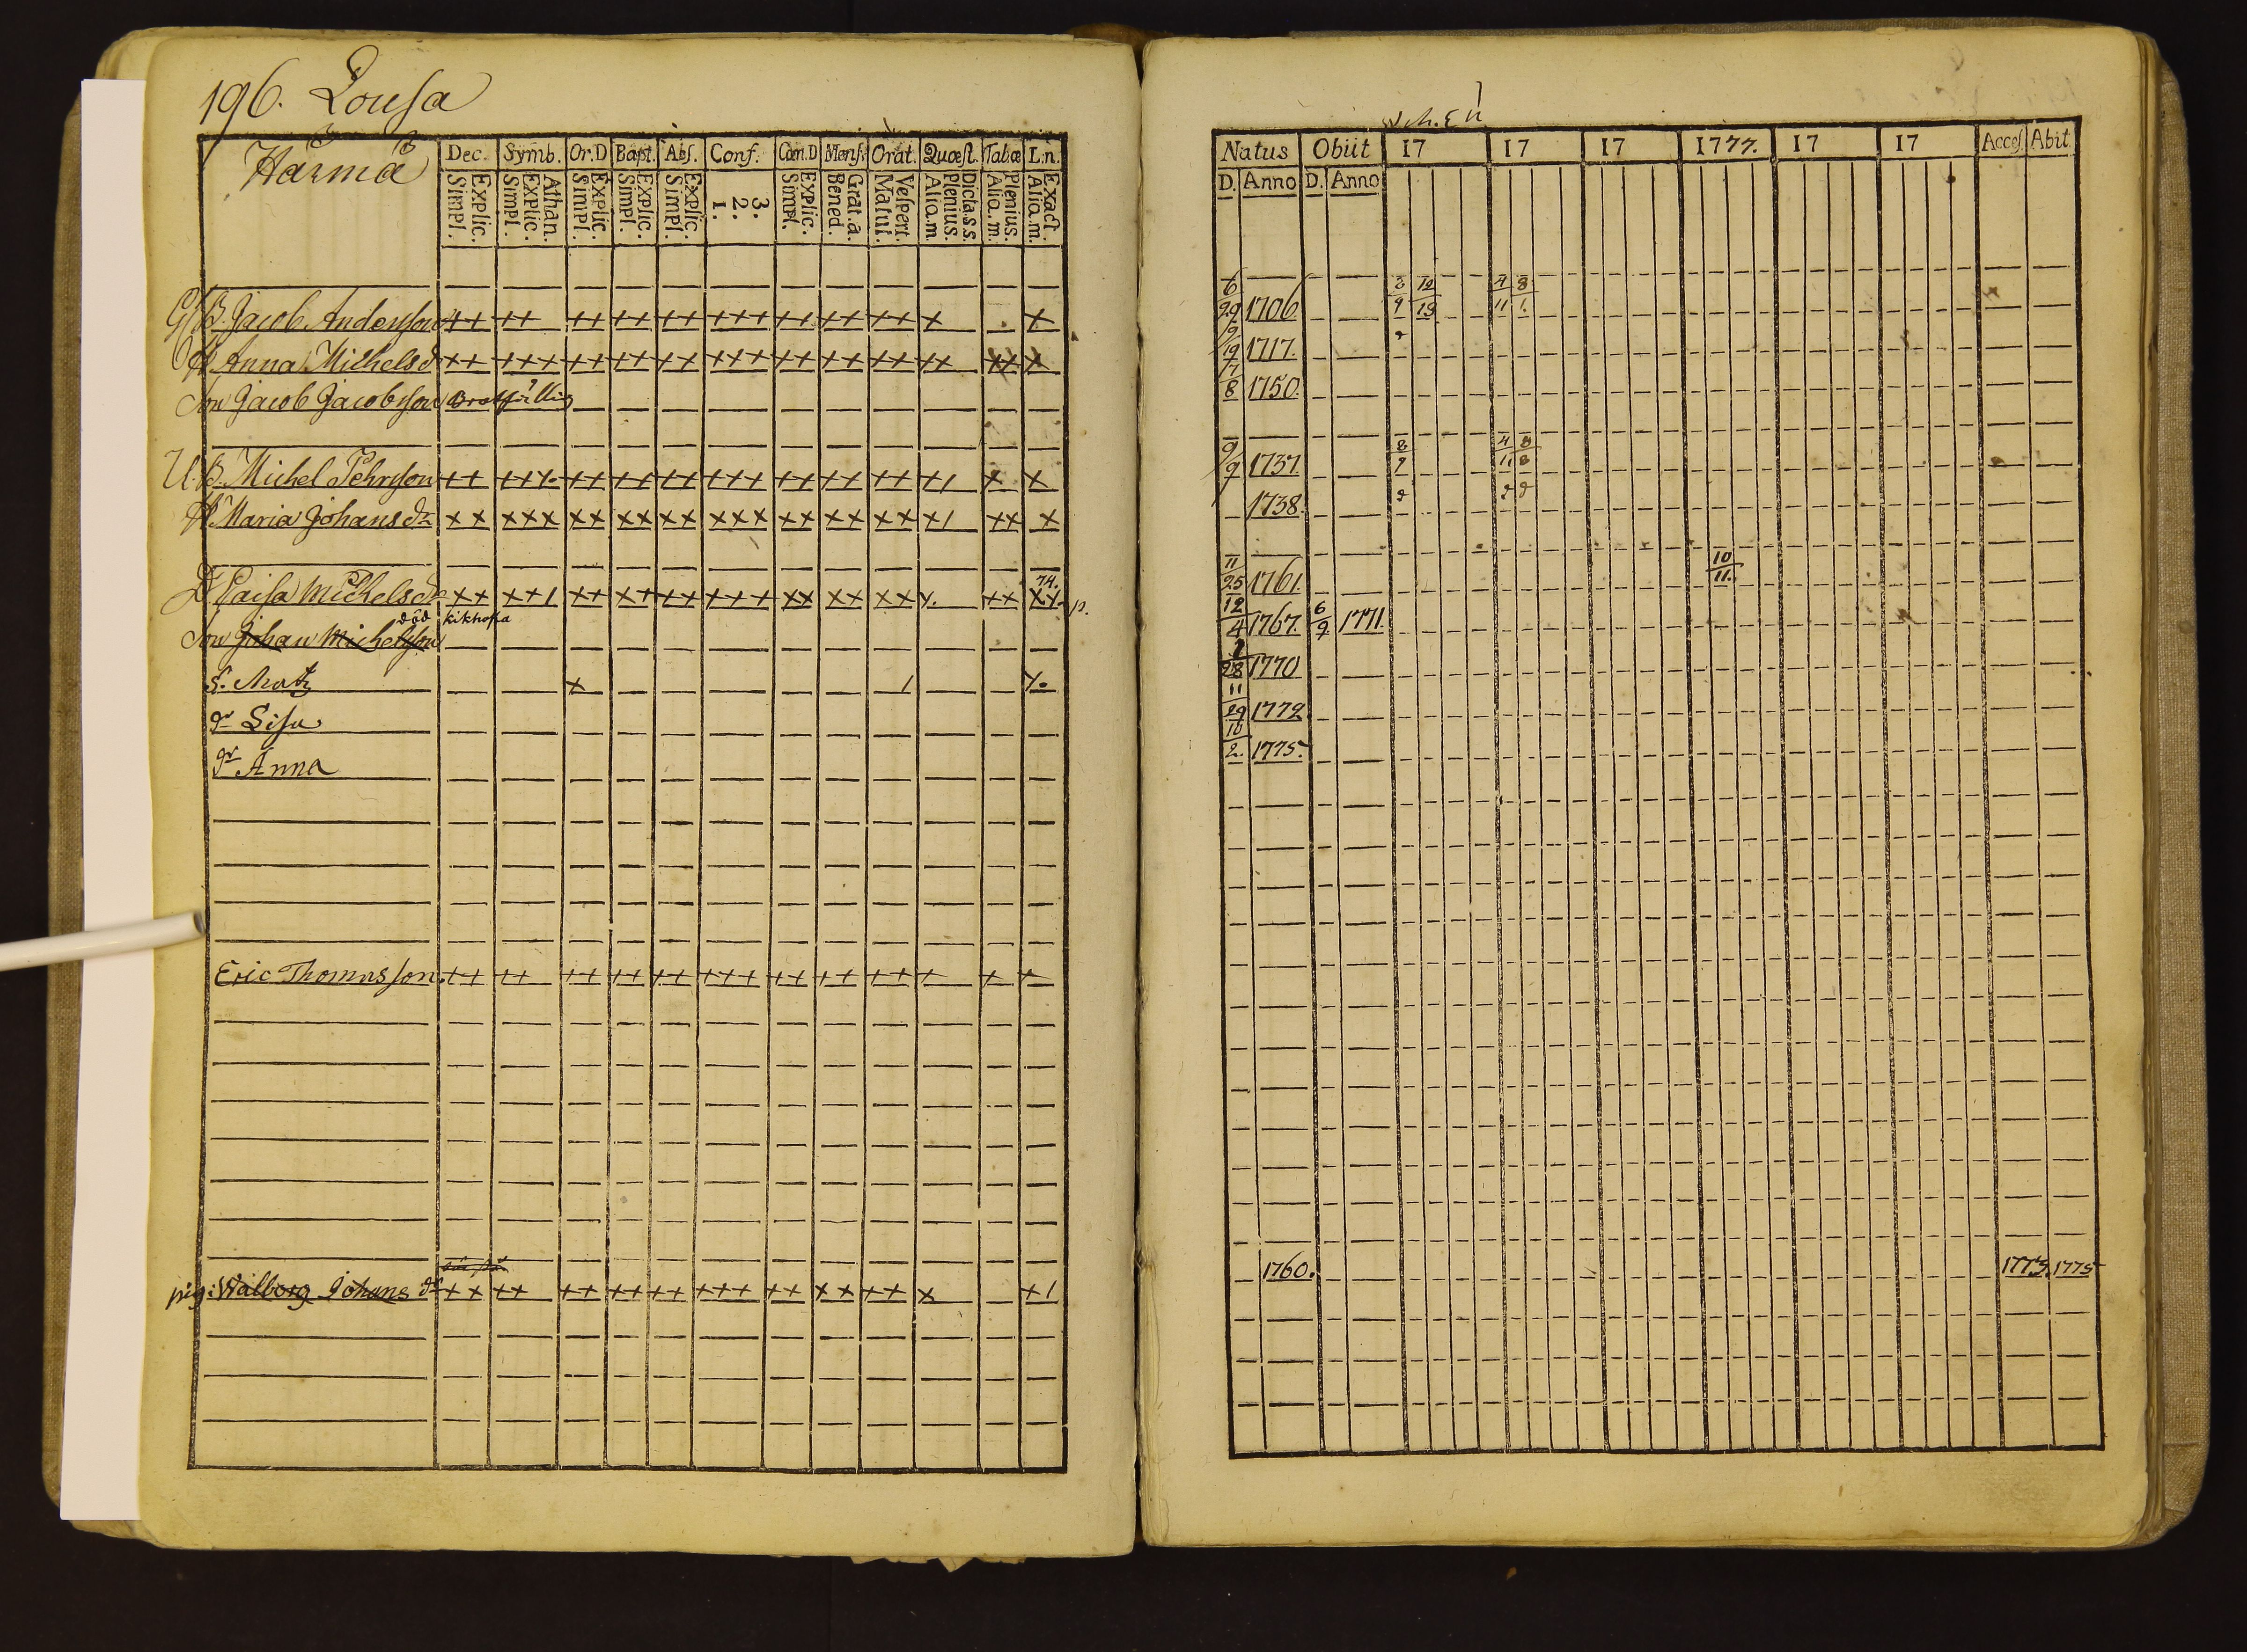 196. Lousa
Härmä
Dec. Symb. Or.D Bapt. Abs. Conf. Cœn.D Mens. Orat. Quæst. Tabæ L.n.
Explic. Simpl. Athan. Explic. Simpl. Explic. Simpl. Explic. Simpl. Explic. Simpl. 3. 2. 1. Explic. Simpl. Grat.a. Bened. Vespert. Matut. Dicta.s.s. Plenius. Alia.m Plenius. Alia.m. Exact. Alia.m.
B. Jacob Anderson ++ ++ ++ ++ ++ +++ ++ ++ ++ + +
H Anna Michelsd ++ +++ ++ ++ ++ +++ ++ ++ ++ ++ ++ +
Son Jacob Jacobson
U. B. Michel Pehrson ++ +++ ++ ++ ++ +++ ++ ++ ++ +/ + +
H. Maria Johansdr ×× ××× ×× ×× ×× ××× ×× ×× ×× ×/ ×× ×
74.
Dr Caisa Michelsdr ×× ××/ ×× ×× ×× ××× ×× ×× ×× ×× p.
död kikhosta
Son Johan Michelson
S. Matz × /
dr Lisa
dr Anna
Eric Thomasson ++ ++ ++ ++ ++ +++ ++ ++ ++ + + +
pig: Walborg Johans dr ++ ++ ++ ++ ++ +++ ++ ×× ++ × +/
Natus Obiit 17 17 17 1777. 17 17 Acces. Abit.
D. Anno D. Anno
6/29 1706.
9/19 1717.
7/8 1750.
9/9 1737.
1738.
11/25 1761. 10/11.
12/4 1767. 6/9 1771.
28 1770
11/29 1772
10/2. 1775.
1760. 1773. 1775